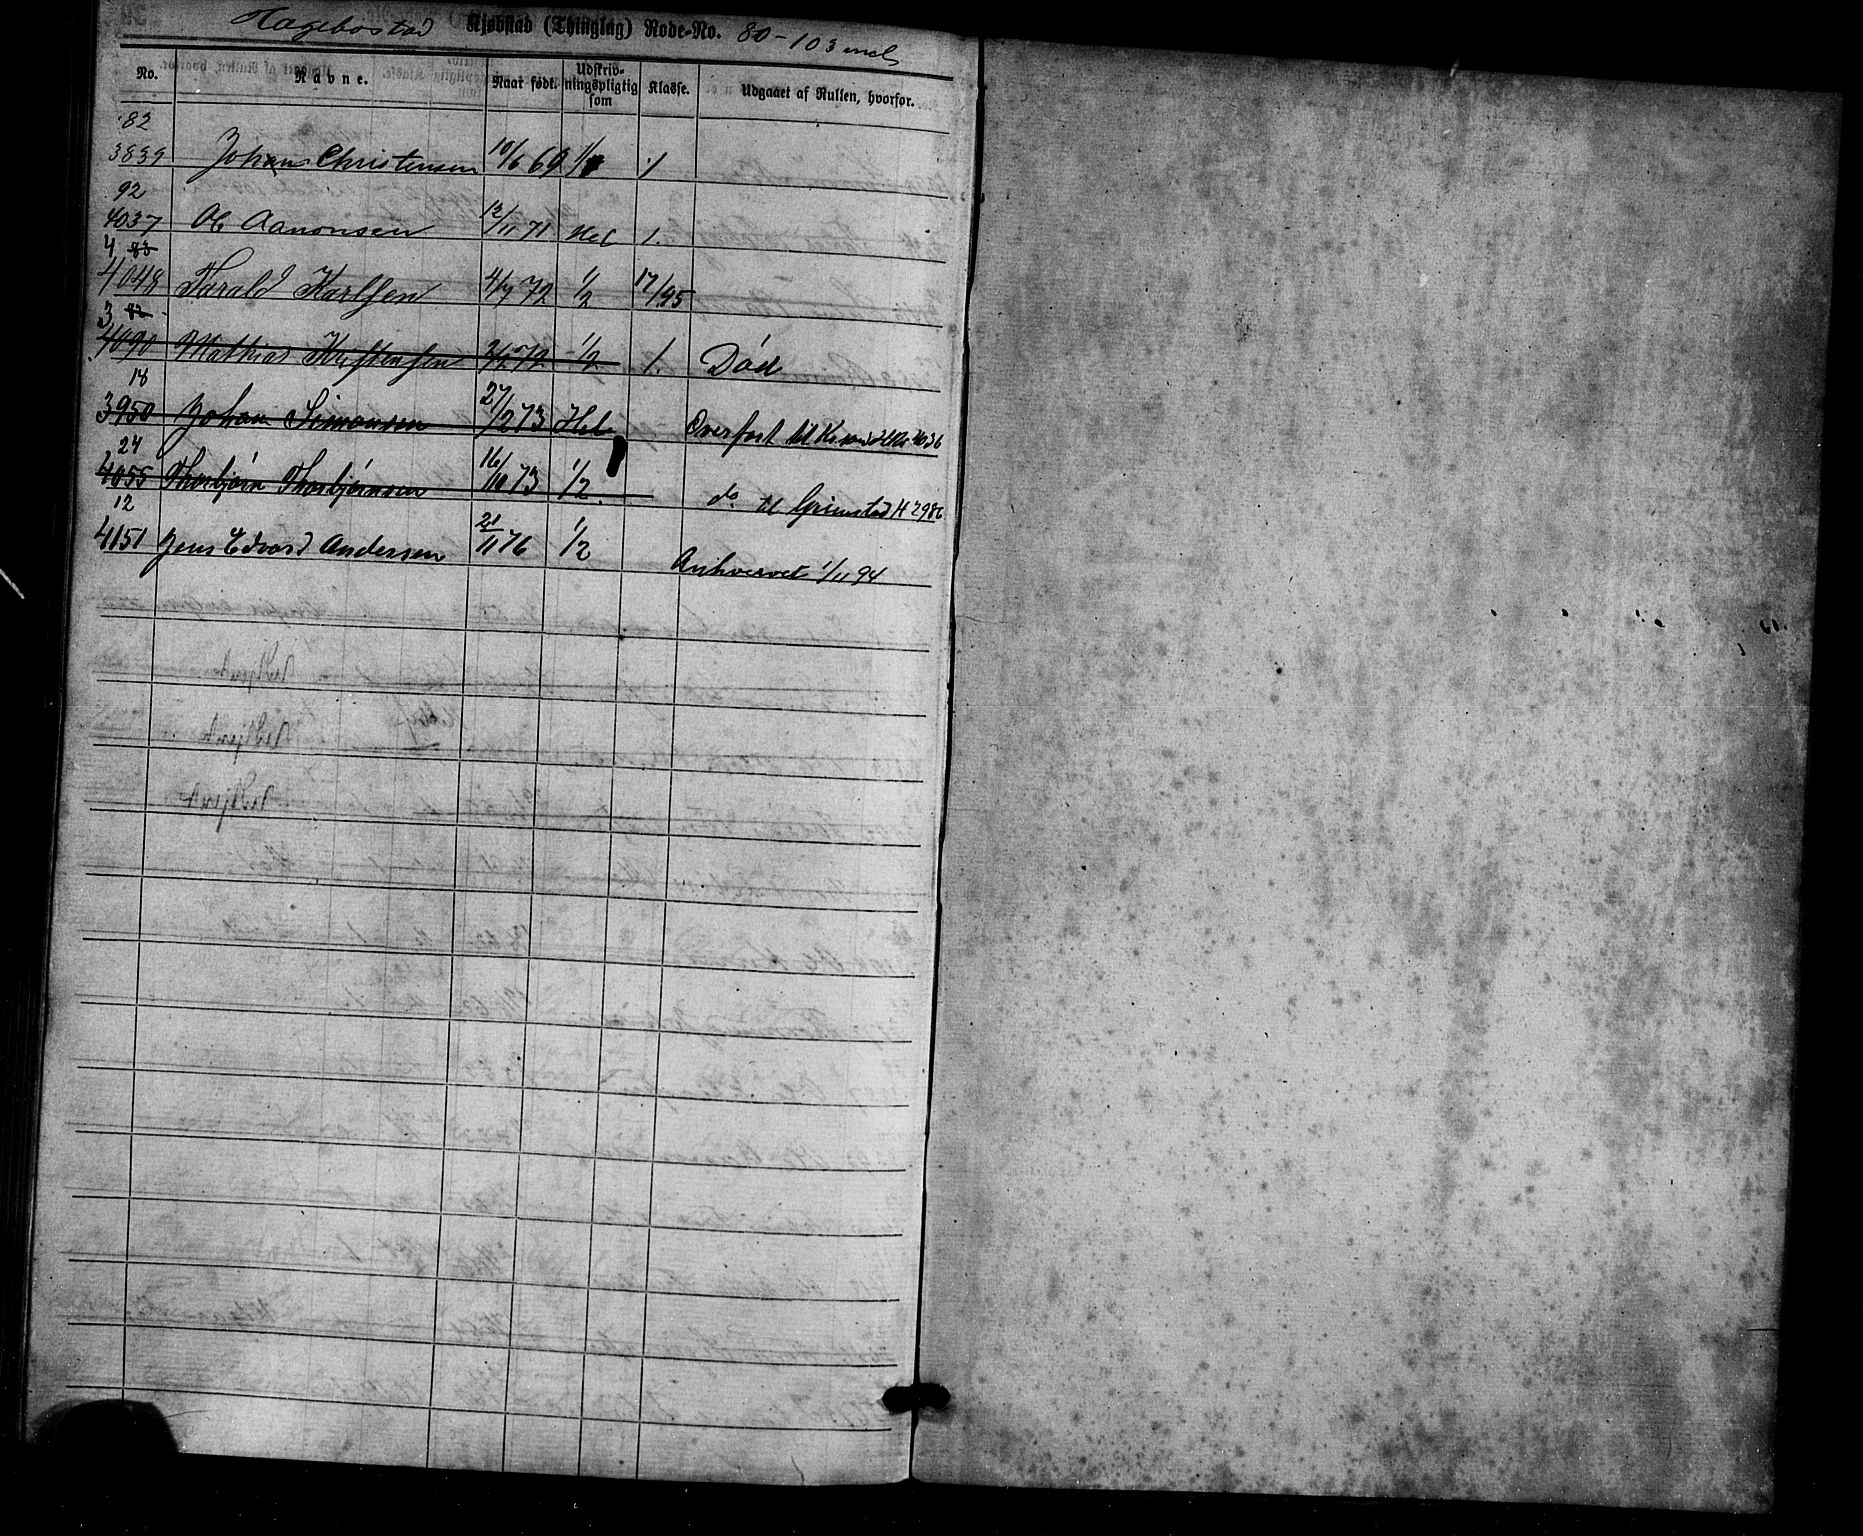 Hagebostad Kjøbstad (Thinglag) Rode-No. 80-103 incl
No. Navne. Naar født. Udskrivningspligtig som Klasse. Udgaaet af Rullen, hvorfor.
82
3839 Johan Christensen 10/6 69 1/1 1
92
4037 Ol Aanonsen 12/11 71 Hel 1.
4 83
4048 Tarald Karlsen 4/7 72 1/2 17/95
3 82
4090 Mathias Kristensen 2/2 72 1/2 1. Død
18
3950 Johan Simonsen 27/2 73 Hel Overført til 4036
24
4055 Thorbjørn Thorbjørnsen 16/10 73 1/2. do til Grimstad H 2986
12
4151 Jens Edvard Andersen 21/11 76 1/2 Anhvervet 1/11 94